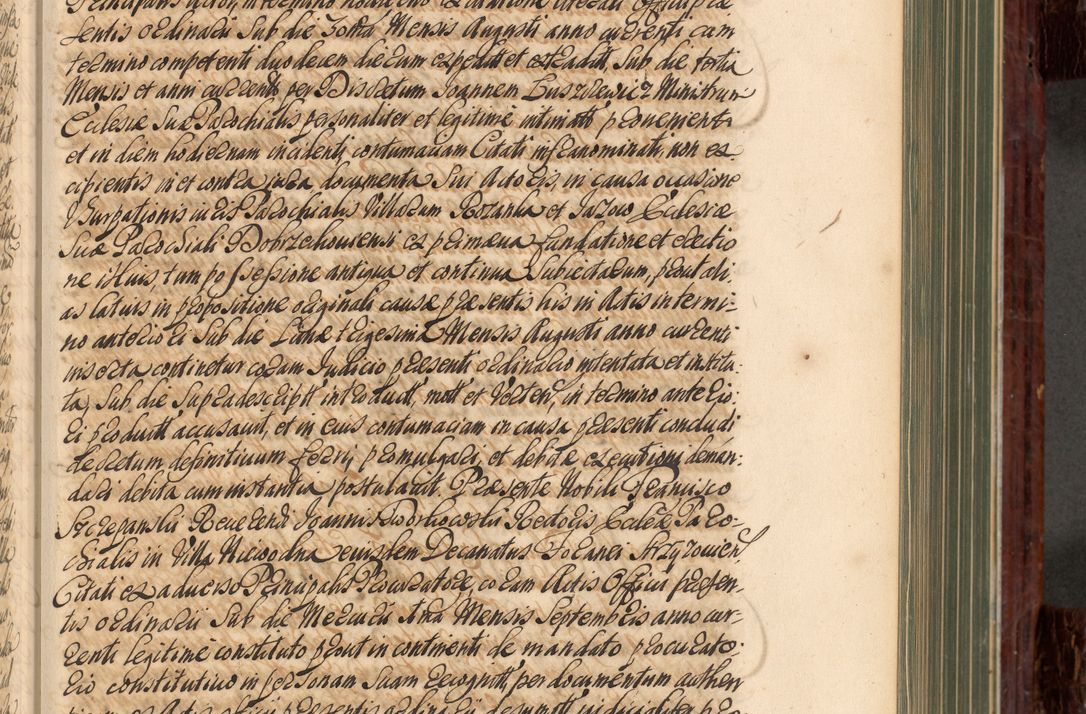 sentis ordinarii Sub die 30ma Mensis Augusti anno currenti cum
termino competenti duodecem dierum expedit et extradit, Sub die tertia
Mensis et anni currentis per Discretum Joannem Luszkiewicz Ministrum
Ecclesiæ Suæ Parochialis personaliter et legitime intimat, provenient
et in diem hodiernam incidenti contumaciam Citati infranominati, non ex-
cipientis in et contra jura documenta Sui Actoris, in causa occasione
Usurpationis juris Parochialis Villarum Rozanka et Jazowa Ecclesiæ
Suæ Parochiali Dobrzechousensi ex primæva fundatione et erectio
ne illius, tam possessione antiqua et continua Subiectarum, prout ali-
as latius in propositione originali causæ præsentis his in Actis in termi-
no anteriori Sub die Lunæ trigesima Mensis Augusti anno currenti
inserta continetur coram Judicio præsenti ordinario intentata et institu-
ta, Sub die Supradescript introduct, mott et vertent, in termino anterio-
ri produxit accusavit, et in eius contumaciam in causa præsenti concludi
decretum definitivum ferri, promulgari, et debitæ executioni deman-
dari debita cum instantia postulavit. Præsente Nobili Francisco
Szczepanski Reverendi Joannis Dworkowski Rectoris Ecclesiæ Paro-
chialis in Villa Niewodna eiusdem Decanatus Foranei Strzyzovien
Citati ex adverso Principalis Procuratore, coram Actis Officii præsen-
tis ordinarii Sub die Mercurii 1ma Mensis Septembris anno cur-
renti legitime constituto prout in continenti de mandato procurato-
rio constitutivo in personam Suam recognit, per documentum authen